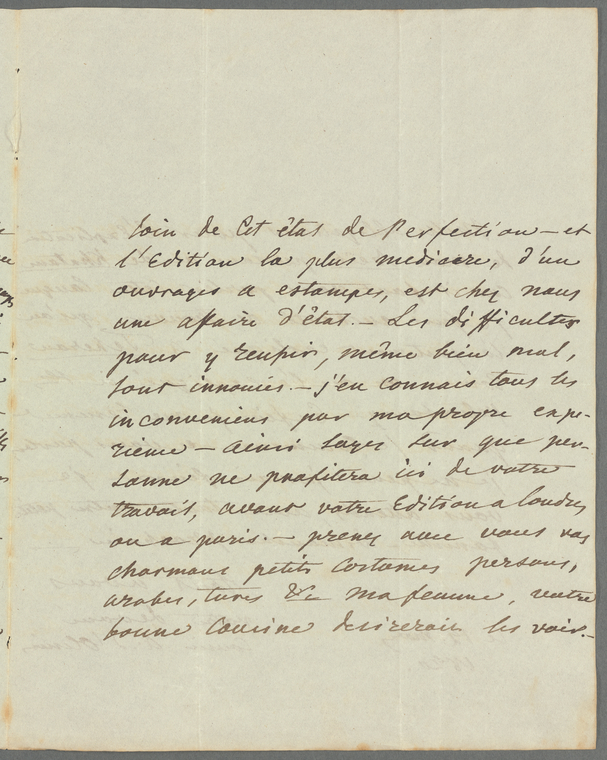 loin de Cet êtat de Perfection — et
l'Edition la plus mediocre, d'un
ouvrages a estampes, est chez nous
une affaire d'état. — Les difficultes
pour y reupir, même bien mal,
sont innouies. — j'en connais tous les
inconveniens par ma propre expe-
rience — ainsi soyes sur que per-
sonne ne profitera ici de votre
travail, avant votre Edition a londres
ou a paris. — prenez avec vous vos
charmans petits Costumes persans,
arabes, turcs &c ma femme, votre
bonne Cousine desirerait les voir. —